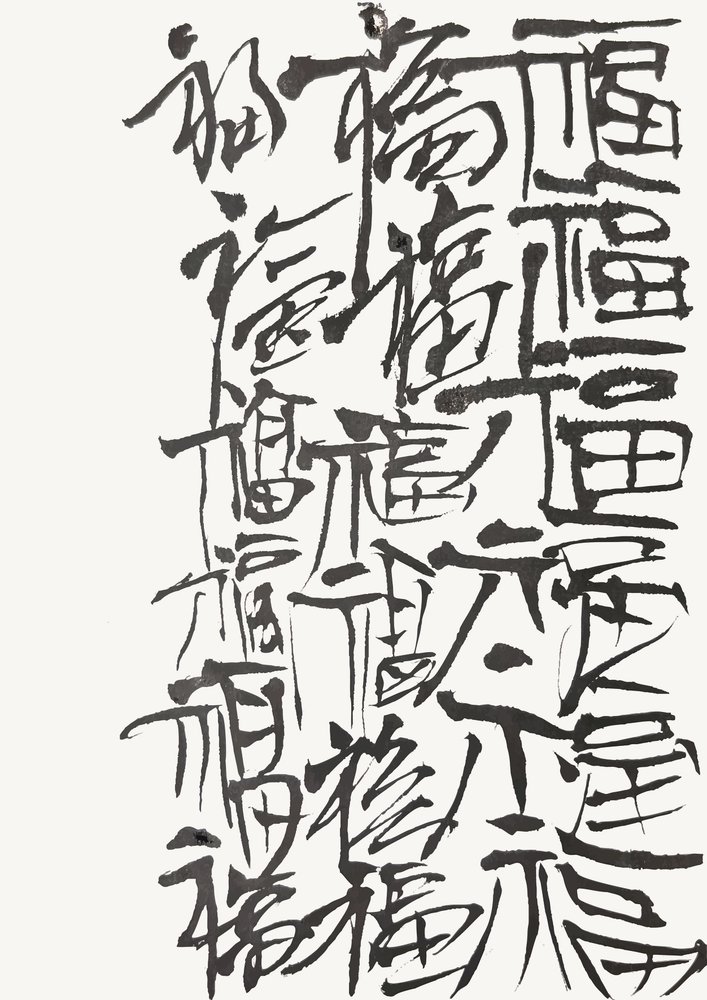 福福福福福福
福福福福福福
福福福福福福